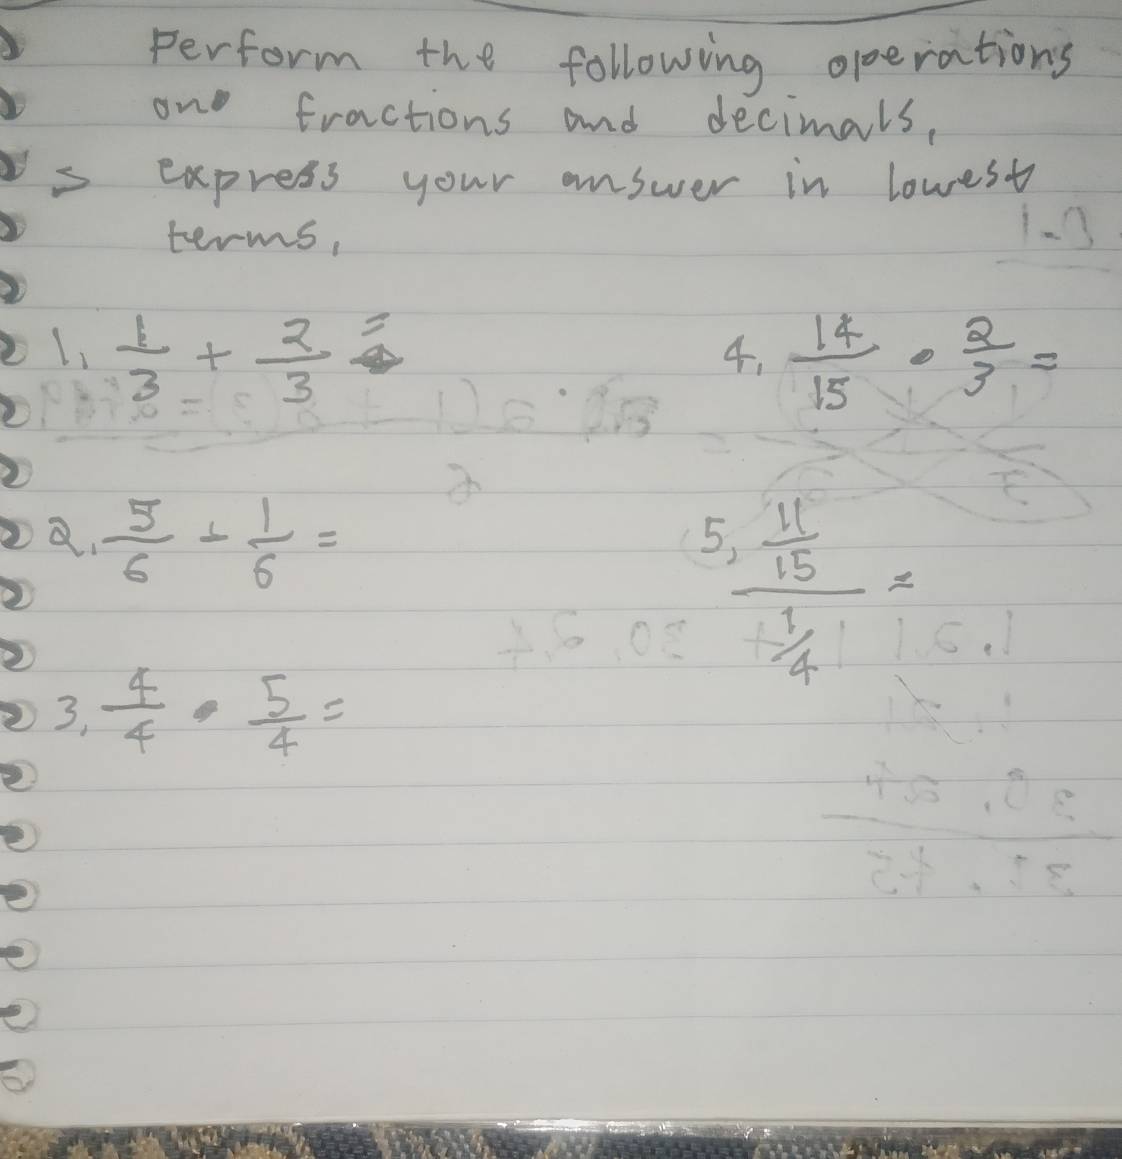 Perform the following operations
on fractions and decimals,
> express your answer in lowest
terms,
1, 1/3 + 2/3 =
4, 14/15 • 2/3 =
2, 5/6 - 1/6 =
5, 11/15 / 1/4 =
3, 4/4 • 5/4 =